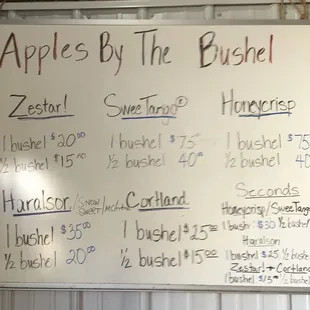 Apples By The Bushel
Zestar!
1 bushel $20.00
1/2 bushel $15.00
SweeTango®
1 bushel $75
1/2 bushel 40
Honeycrisp
1 bushel $75
1/2 bushel 40
Haralson/Snow Sweet/
1 bushel $35.00
1/2 bushel 20.00
Cortland
1 bushel $25.00
1/2 bushel $15.00
Seconds
Honeycrisp/SweeTango
1 bush $30 1/2 bushel
Haralson
1 bushel $25 1/2 bushel
Zestar! + Cortland
1 bushel $15 1/2 bushel